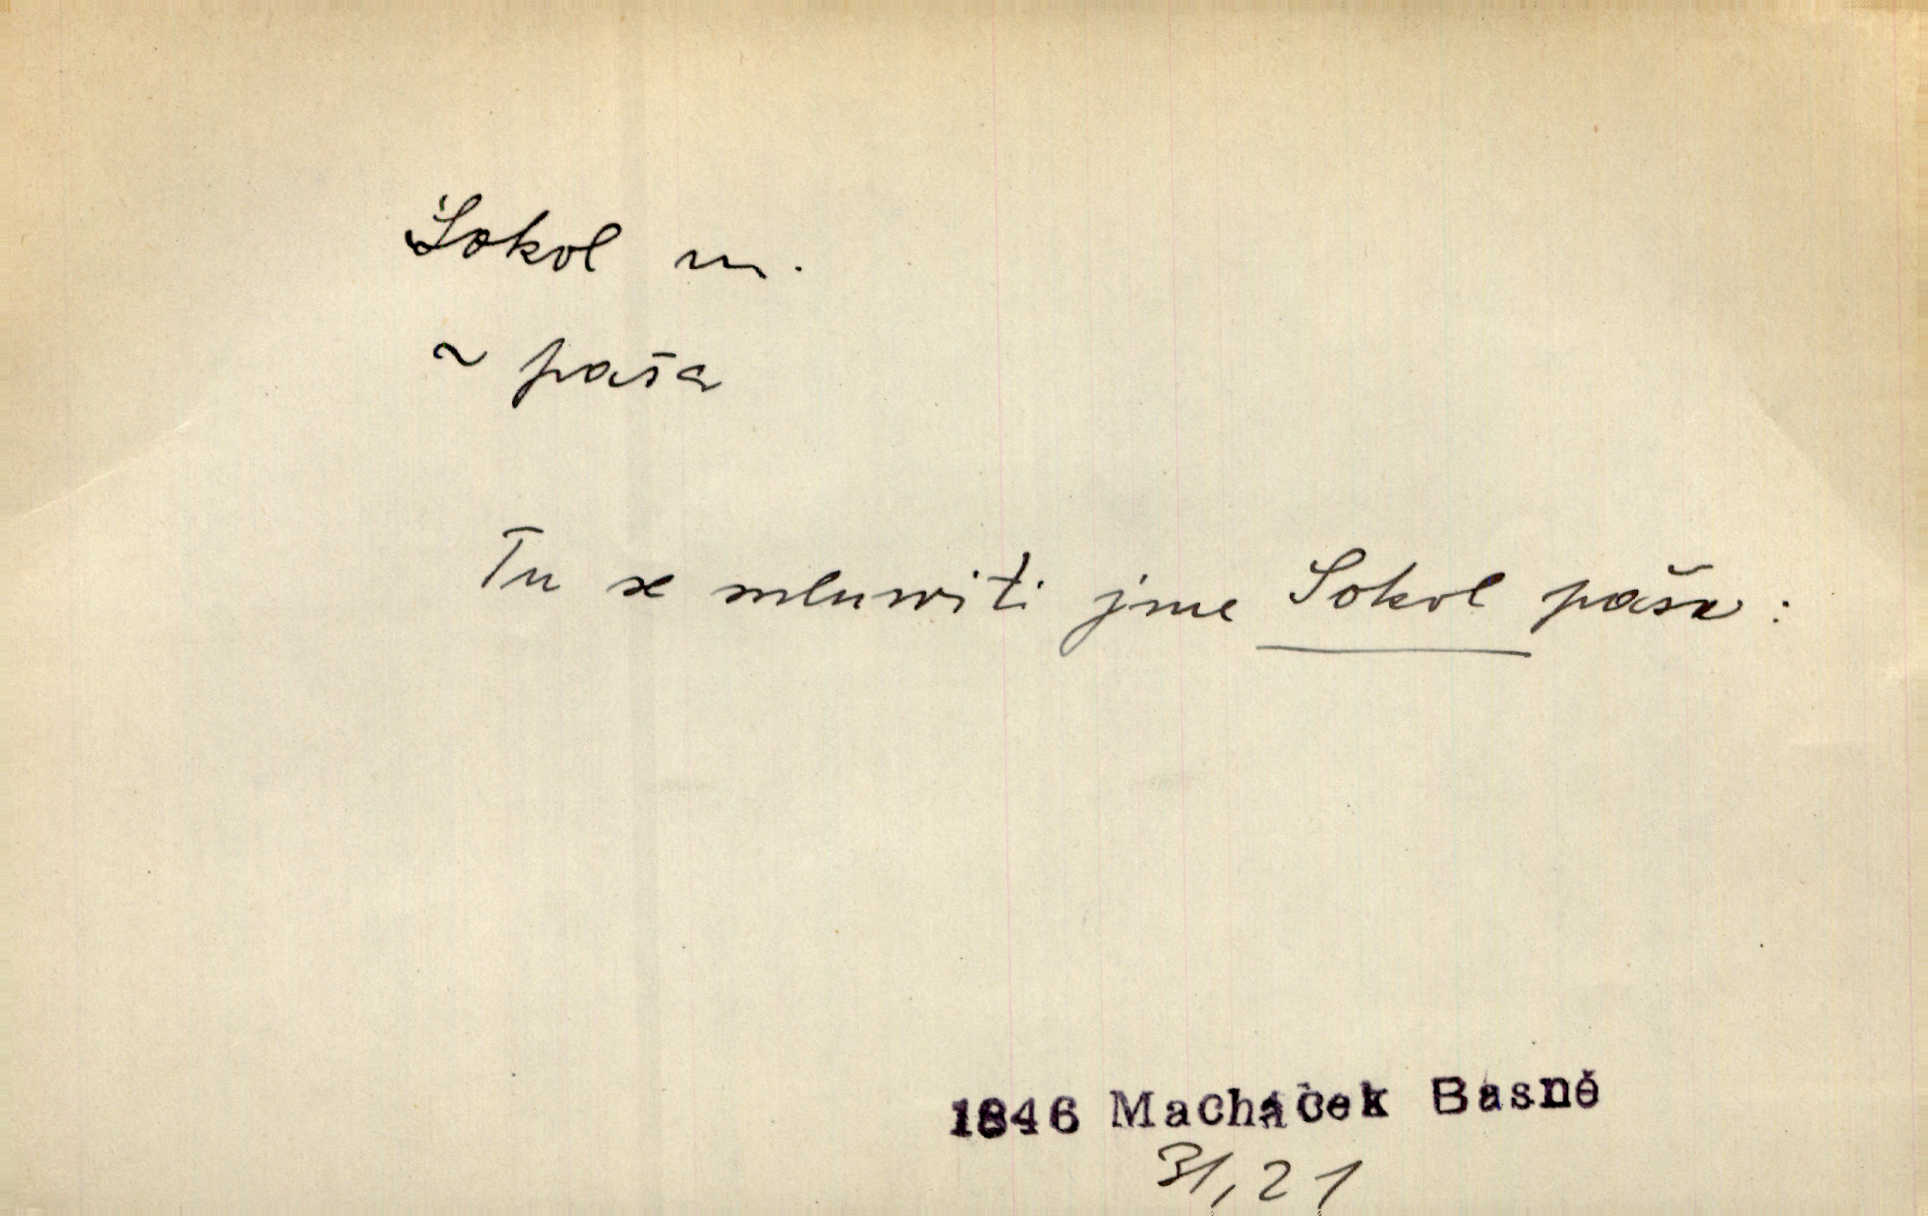 Sokol m.
~ paša
Tu se mluwiti jme Sokol paša:
1846 Macháček Basně
31,21